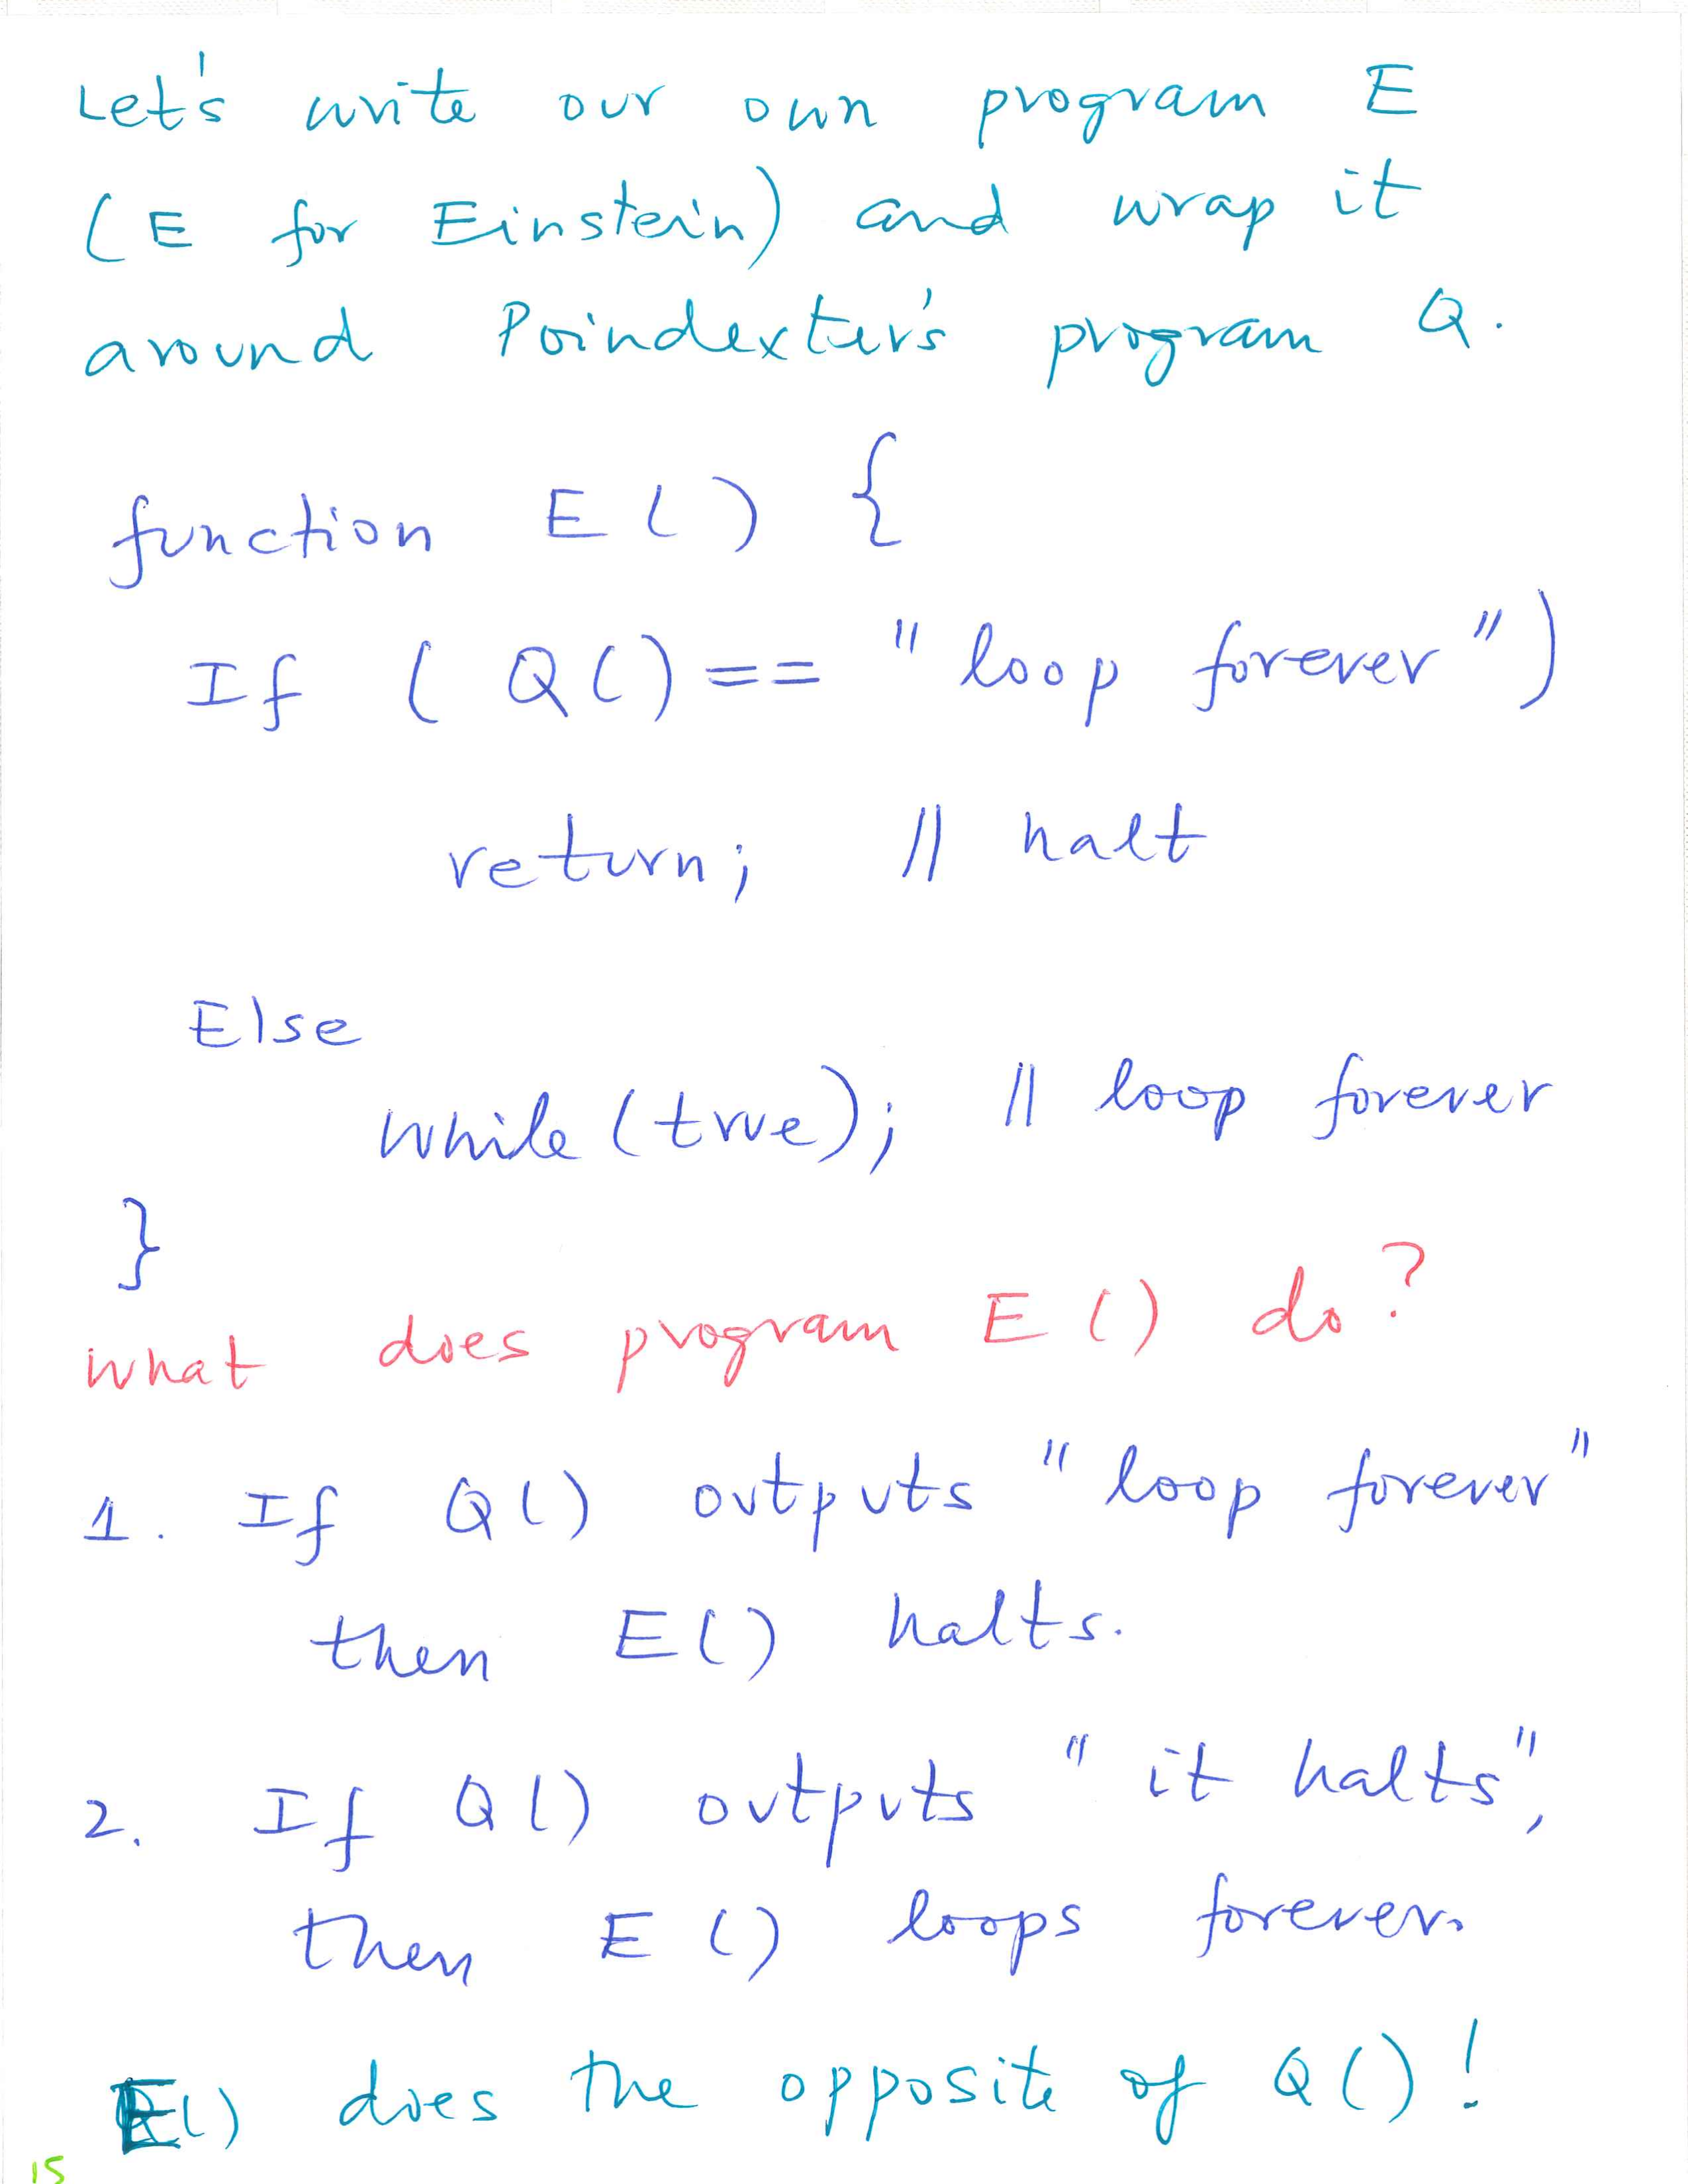 Let's write our own program E
(E for Einstein) and wrap it
around Poindexter's program Q.
function E() {
If ( Q() == "loop forever")
return; // halt
Else
while (true); // loop forever
}
what does program E() do?
1. If Q() outputs "loop forever"
then E() halts.
2. If Q() outputs "it halts",
then E() loops forever.
E() does the opposite of Q()!
15